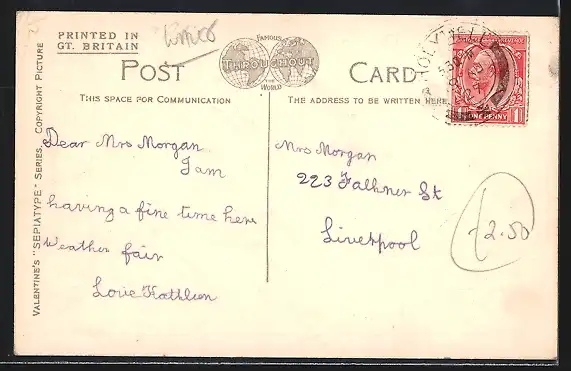 PRINTED IN
GT. BRITAIN
FAMOUS
THROUGHOUT
WORLD
POST CARD
THIS SPACE FOR COMMUNICATION
THE ADDRESS TO BE WRITTEN HERE
VALENTINE'S "SEPIATYPE" SERIES. COPYRIGHT PICTURE
Dear Mrs Morgan
I am
having a fine time here
Weather fair
Love Kathleen
Mrs Morgan
223 Falkner St
Liverpool
£2.50
HOLYWELL
ONE PENNY